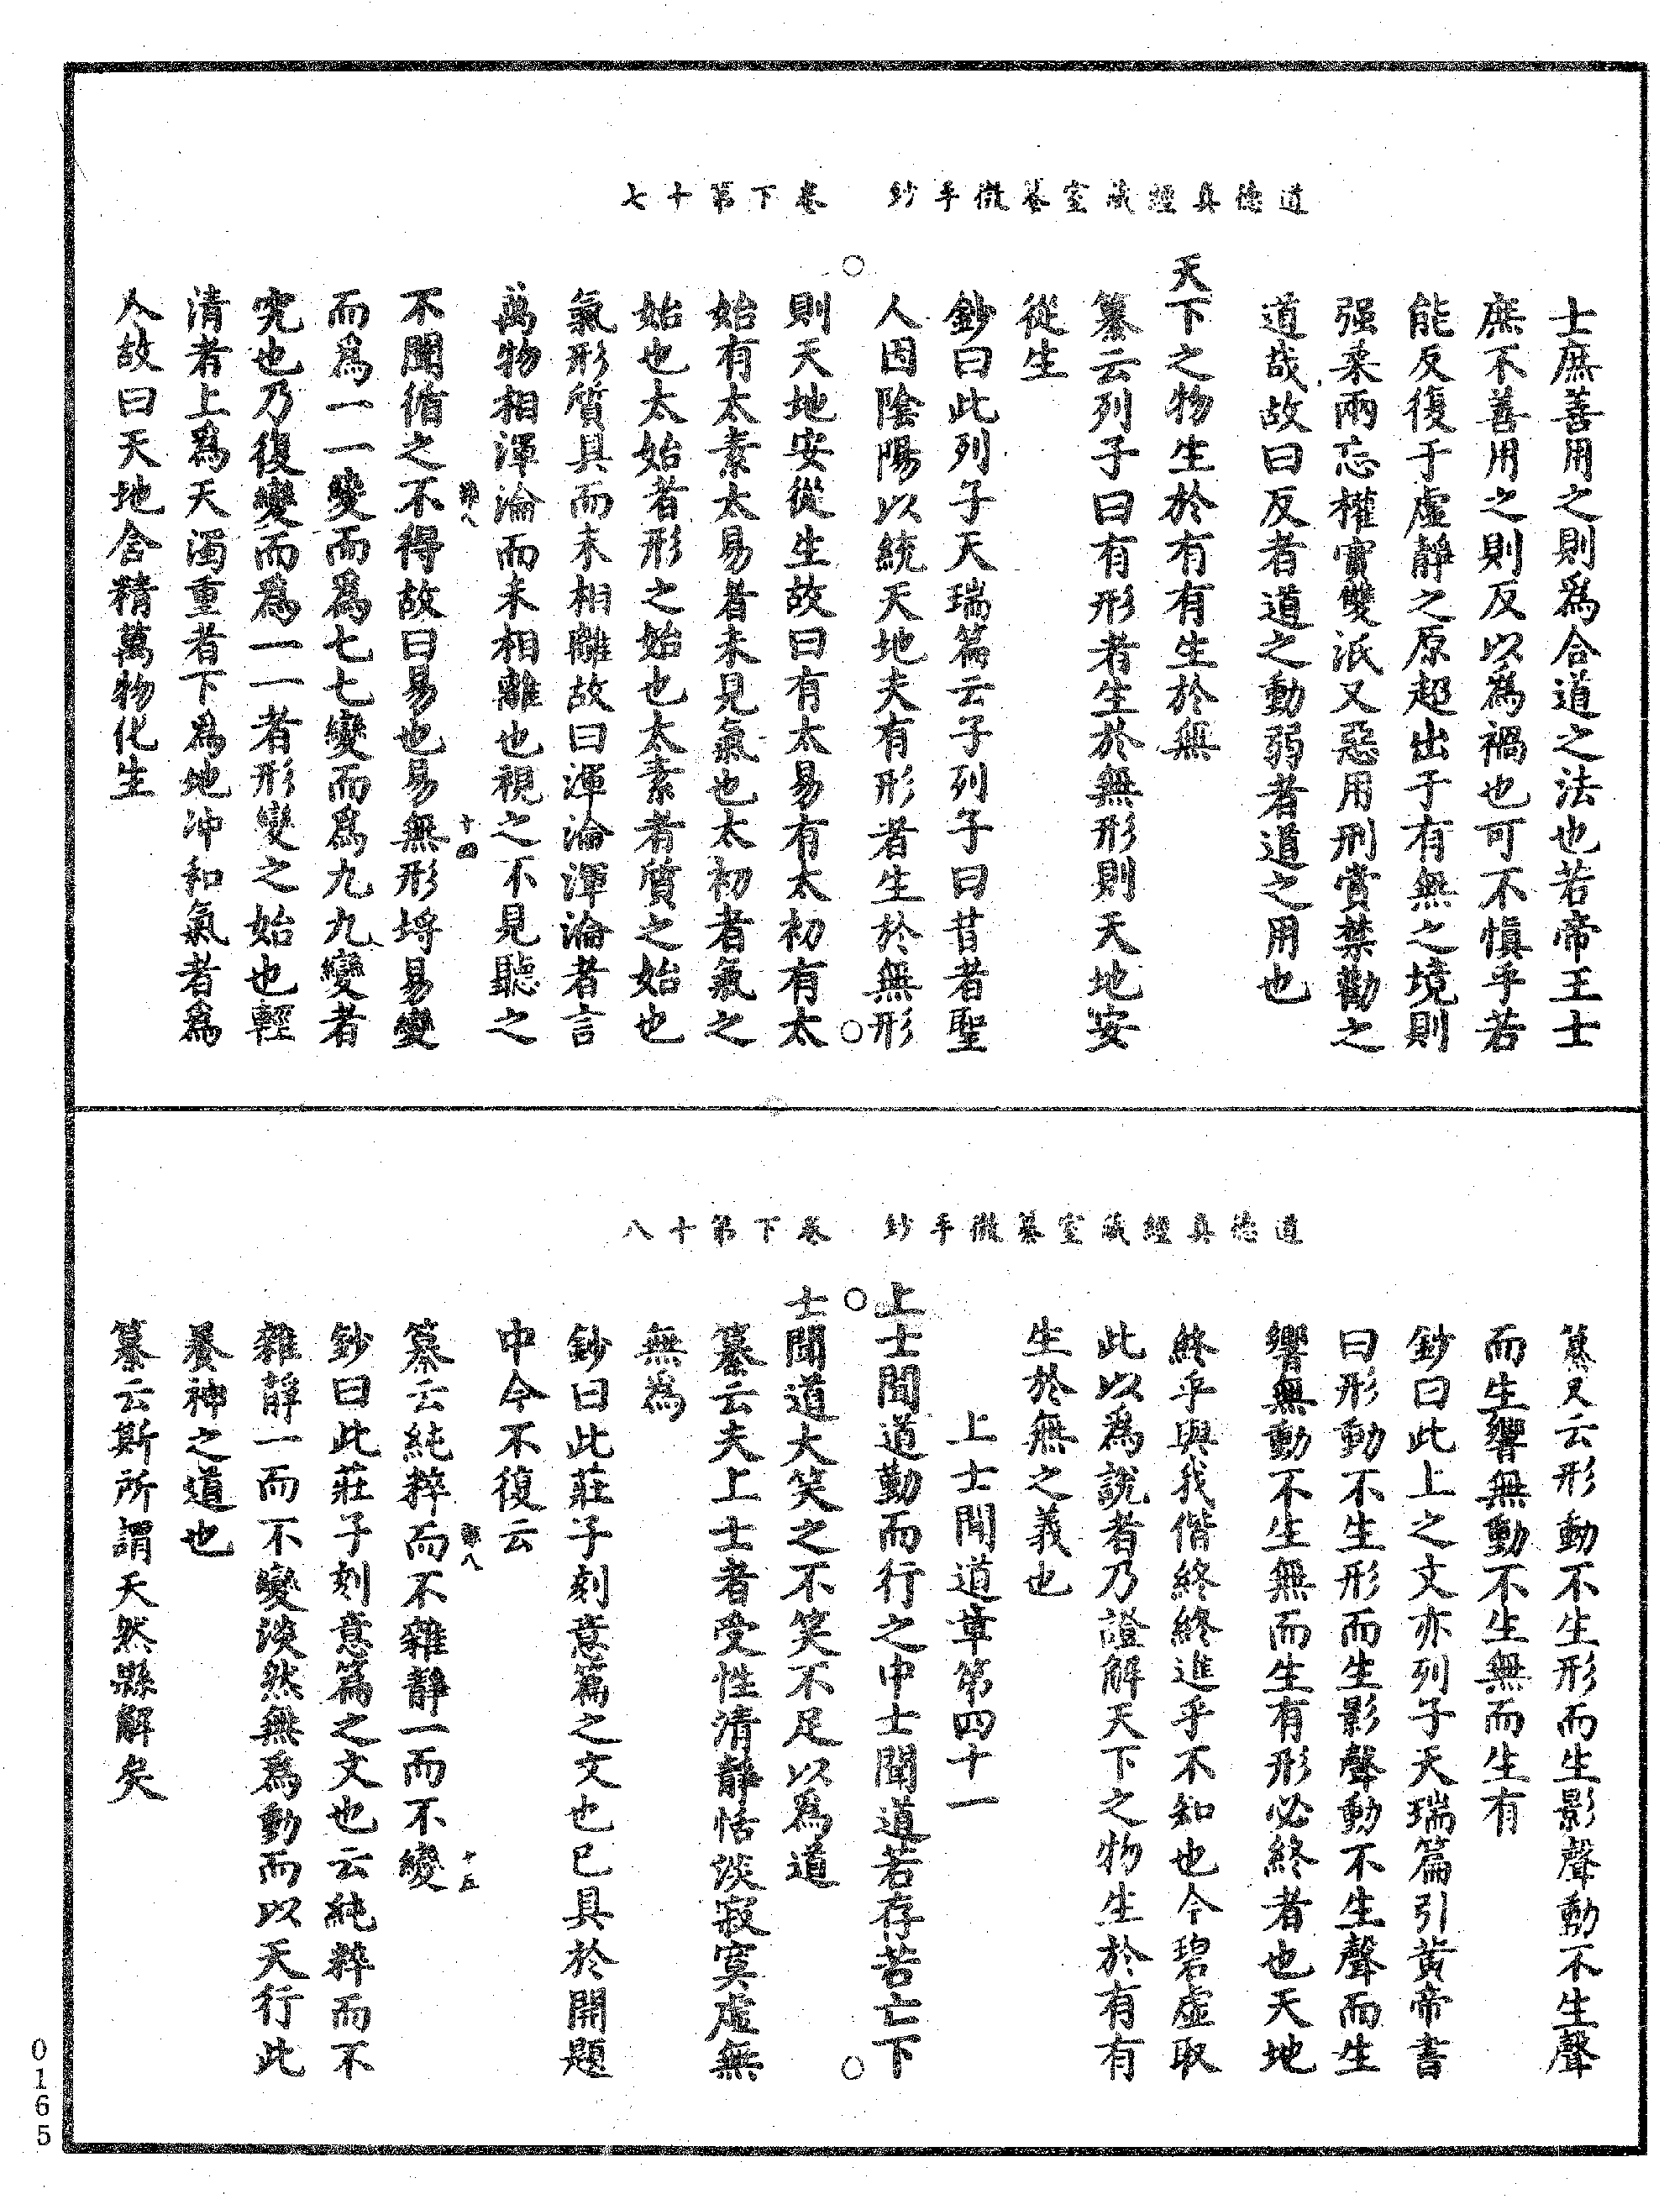 道德真經藏室纂微手鈔　卷下第十七
士庶善用之則爲合道之法也若帝王士
庶不善用之則反以為禍也可不慎乎若
能反復于虛靜之原超出于有無之境則
强柔兩忘權實雙泯又惡用刑賞禁勸之
道哉故曰反者道之動弱者道之用也
天下之物生於有有生於無
纂云列子曰有形者生於無形則天地安
從生
鈔曰此列子天瑞篇云子列子曰昔者聖
人因陰陽以統天地夫有形者生於無形
則天地安從生故曰有太易有太初有太
始有太素太易者未見氣也太初者氣之
始也太始者形之始也太素者質之始也
氣形質具而未相離故曰渾淪渾淪者言
萬物相渾淪而未相離也視之不見聽之
不聞循之不得故曰易也易無形埒易變
而爲一一變而爲七七變而爲九九變者
究也乃復變而爲一一者形變之始也輕
清者上爲天濁重者下爲地冲和氣者爲
人故曰天地含精萬物化生
道德真經藏室纂微手鈔　卷下第十八
纂又云形動不生形而生影聲動不生聲
而生響無動不生無而生有
鈔曰此上之文亦列子天瑞篇引黃帝書
曰形動不生形而生影聲動不生聲而生
響無動不生無而生有形必終者也天地
終乎與我偕終終進乎不知也今碧虛取
此以爲說者乃證解天下之物生於有有
生於無之義也
上士聞道章第四十一
上士聞道勤而行之中士聞道若存若亡下
士聞道大笑之不笑不足以爲道
纂云夫上士者受性清靜恬淡寂寞虛無
無為
鈔曰此莊子刻意篇之文也已具於開題
中今不復云
纂云純粹而不雜靜一而不變
十五
鈔曰此莊子刻意篇之文也云純粹而不
雜靜一而不變淡然無爲動而以天行此
養神之道也
纂云斯所謂天然縣解矣
0165